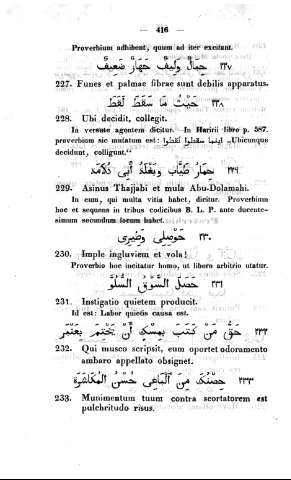 — 416 —
Proverbium adhibent, quum ad iter excitant.
٢٢٧ حِبَالٌ وَلِيفٌ جَهَازٌ ضَعِيفٌ
227. Funes et palmae fibrae sunt debilis apparatus.
٢٢٨ حَيْثُ مَا سَقَطَ لَقَطَ
228. Ubi decidit, collegit.
In versute agentem dicitur. In Haririi libro p. 587.
proverbium sic mutatum est: اينما سقطوا لقطوا „Ubicunque
decidunt, colligunt.“
٢٢٩ حِمَارُ طَيَّابٍ وَبَغْلَةُ أَبِى دُلَامَةَ
229. Asinus Thajjabi et mula Abu-Dolamahi.
In eum, qui multa vitia habet, diritur. Proverbium
hoc et sequens in tribus codicibus B. L. P. ante ducente-
simum secundum locum habet.
٢٣٠ حَوْصِلِى وَطِيرِى
230. Imple ingluviem et vola!
Proverbio hoc incitatur homo, ut libero arbitrio utatur.
٢٣١ حَصَلَ السَّوْقُ السُّلُوَّ
231. Instigatio quietem producit.
Id est: Labor quietis causa est.
٢٣٢ حَقُّ مَنْ كَتَبَ بِمِسْكٍ أَنْ يَخْتِمَ بِعَنْبَرٍ
232. Qui musco scripsit, eum oportet odoramento
ambaro appellato obsignet.
٢٣٣ حِصْنُكَ مِنَ ٱلْبَاغِى حُسْنُ ٱلْمُكَاشَرَةِ
233. Munimentum tuum contra scortatorem est
pulchritudo risus.